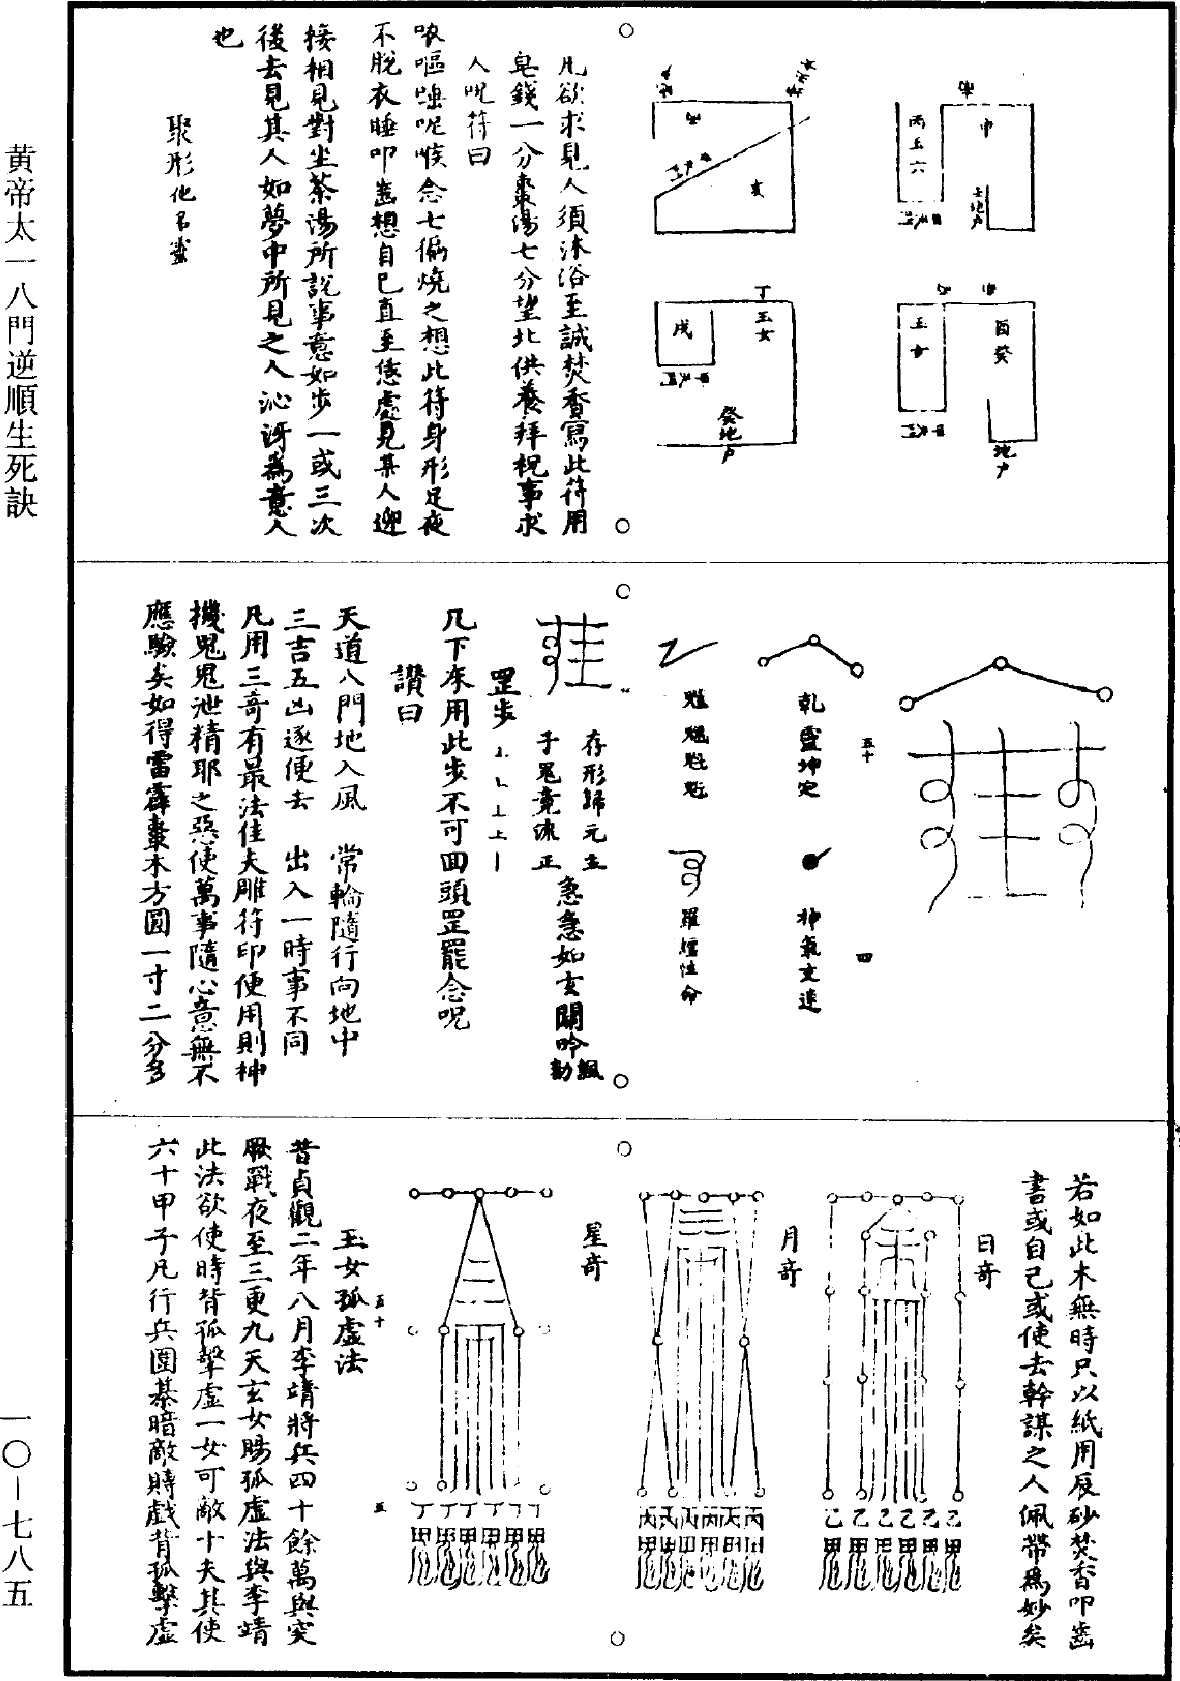 黄帝太一八門逆順生死訣
一〇—七八五
申
丙玉六
酉癸
地户
玉女
亥
丁玉女
戌
癸地户
凡欲求見人須沐浴至誠焚香寫此符用
皂錢一分棗湯七分望北供養拜祝事求
人呪符曰
念七徧燒之想此符身形足夜
不脫衣睡叩齒想自己直至恁處見某人迎
接相見對坐茶湯所說事意如步一或三次
後去見其人如夢中所見之人沁訝為意人
也
聚形他名靈
五十
四
乾靈坤定
神氣交連
存形歸元主
急急如玄關吟
罡步
凡下床用此步不可回頭罡罷念呪
讚曰
天道八門地入風　常輪隨行向地中
三吉五凶逐便去　出入一時事不同
凡用三奇有最法佳夫雕符印使用則神
機鬼鬼泄精耶之惡使萬事隨心意無不
應驗矣如得雷霹棗木方圓一寸二分多
若如此木無時只以紙用辰砂焚香叩齒
書或自己或使去幹謀之人佩帶為妙矣
日奇
乙乙乙乙乙乙
甲甲甲甲甲甲
月奇
丙丙丙丙丙丙
甲甲甲甲甲甲
星奇
丁丁丁丁丁丁
甲甲甲甲甲甲
五十
五
玉女孤虛法
昔貞觀二年八月李靖將兵四十餘萬與突
厥戰夜至三更九天玄女賜孤虛法與李靖
此法欲使時背孤擊虛一女可敵十夫其使
六十甲子凡行兵圍棊暗敵時戲背孤擊虛